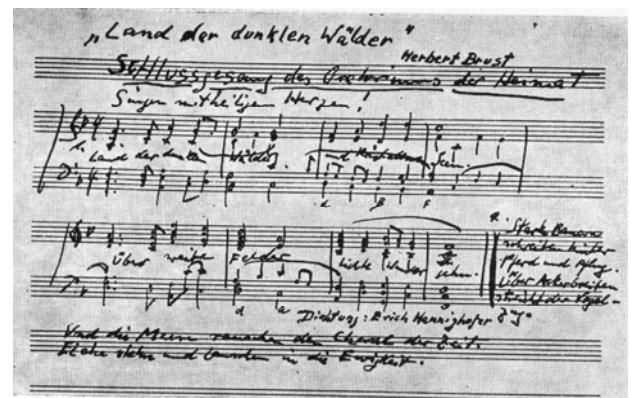 „Land der dunklen Wälder"
Herbert Brust
Schlussgesang des Oratoriums der Heimat
Singen mit heiligem Herzen!
1. Land der dunklen Wälder und Kristallnen Seen.
d g F
Über weite Felder lichte Wunder gehn.
d a
Dichtung: Erich Hannighofer
2. Starke Bauern
schreiten hinter
Pferd und Pflug.
Über Ackerbreiten
streicht der Vogel-
zug.
Und die Meere rauschen den Choral der Zeit.
Elche stehn und lauschen in die Ewigkeit.